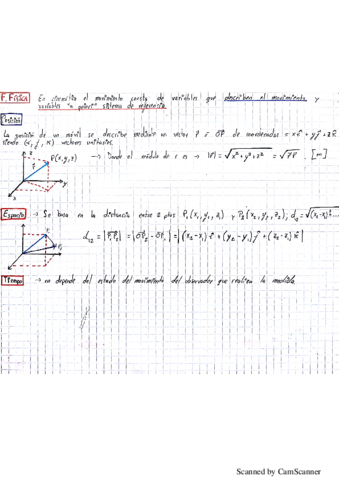 F. Física En cinemática el movimiento consta de variables que describen el movimiento, y
variables "a priori" sistema de referencia.
Posición
La posición de un móvil se describe mediante un vector r = OP de coordenadas = xi + yj + zk
siendo (i, j, k) vectores unitarios.
z P(x, y, z) → Donde el módulo de r es → |r| = √x² + y² + z² = √r·r. [m]
r
y
x
Espacio → Se basa en la distancia entre 2 ptos P₁(x₁, y₁, z₁) y P₂(x₂, y₂, z₂);
d₁₂ = |P₁P₂| = |OP₂ - OP₁| = |(x₂-x₁)i + (y₂-y₁)j + (z₂-z₁)k|
Tiempo → no depende del estado del movimiento del observador que realiza la medida.
Scanned by CamScanner